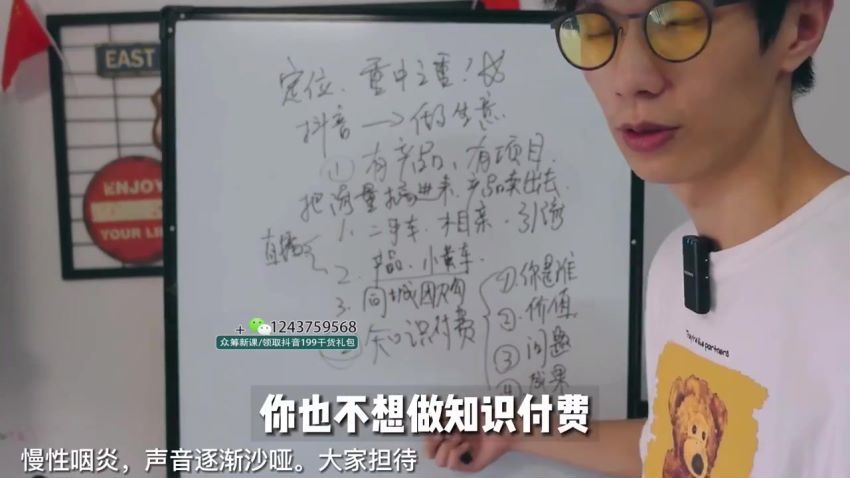 EAST
ENJOY
YOUR LIFE
定位、重中之重!
抖音→做生意
① 有产品、有项目
把流量搞进来,产品卖出去
1. 二手车、相亲、引流
直播
2. 产品、小黄车
3. 同城团购
知识付费
① 你是谁
② 价值
③ 问题
④ 成果
+ 1243759568
众筹新课/领取抖音199干货礼包
They're like partners
你也不想做知识付费
慢性咽炎,声音逐渐沙哑。大家担待